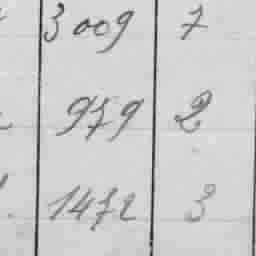 3009 7
979 2
1472 3